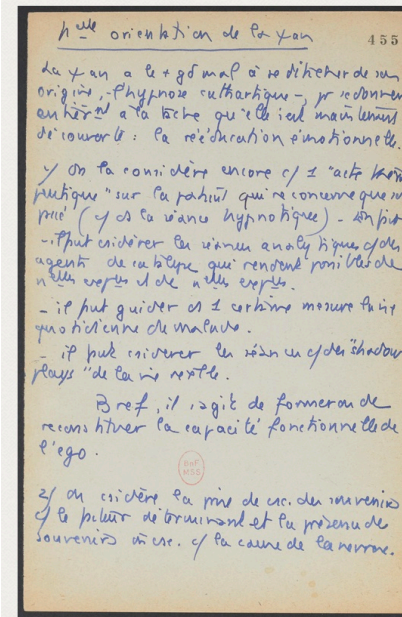 plle orientation de la ψan
455
La ψan a le + gd mal à se détacher de son
origine, - l'hypnose cathartique -, pr se donner
entièrmt à la tâche qu'elle s'est maintenant
découverte : la rééducation émotionnelle.
1/ On la considère encore c/ 1 "acte théra
peutique" sur le patient qui ne concerne que
(c/ ds la séance hypnotique) -
- il put csidérer les séances analytiques c/ des
agents de catalyse qui rendent possibles de
nelles expces et de nelles expces.
- il put guider ds 1 certaine mesure la vie
quotidienne du malade.
- il put csiderer les séances c/ des "shadow
plays" de la vie réelle.
Bref, il s'agit de former ou de
reconstituer la capacité fonctionnelle de
l'ego.
BnF
MSS
2/ On csidère la prise de csc. des souvenirs
c/ le facteur déterminant et la présence de
souvenirs incsc. c/ la cause de la nevrose.